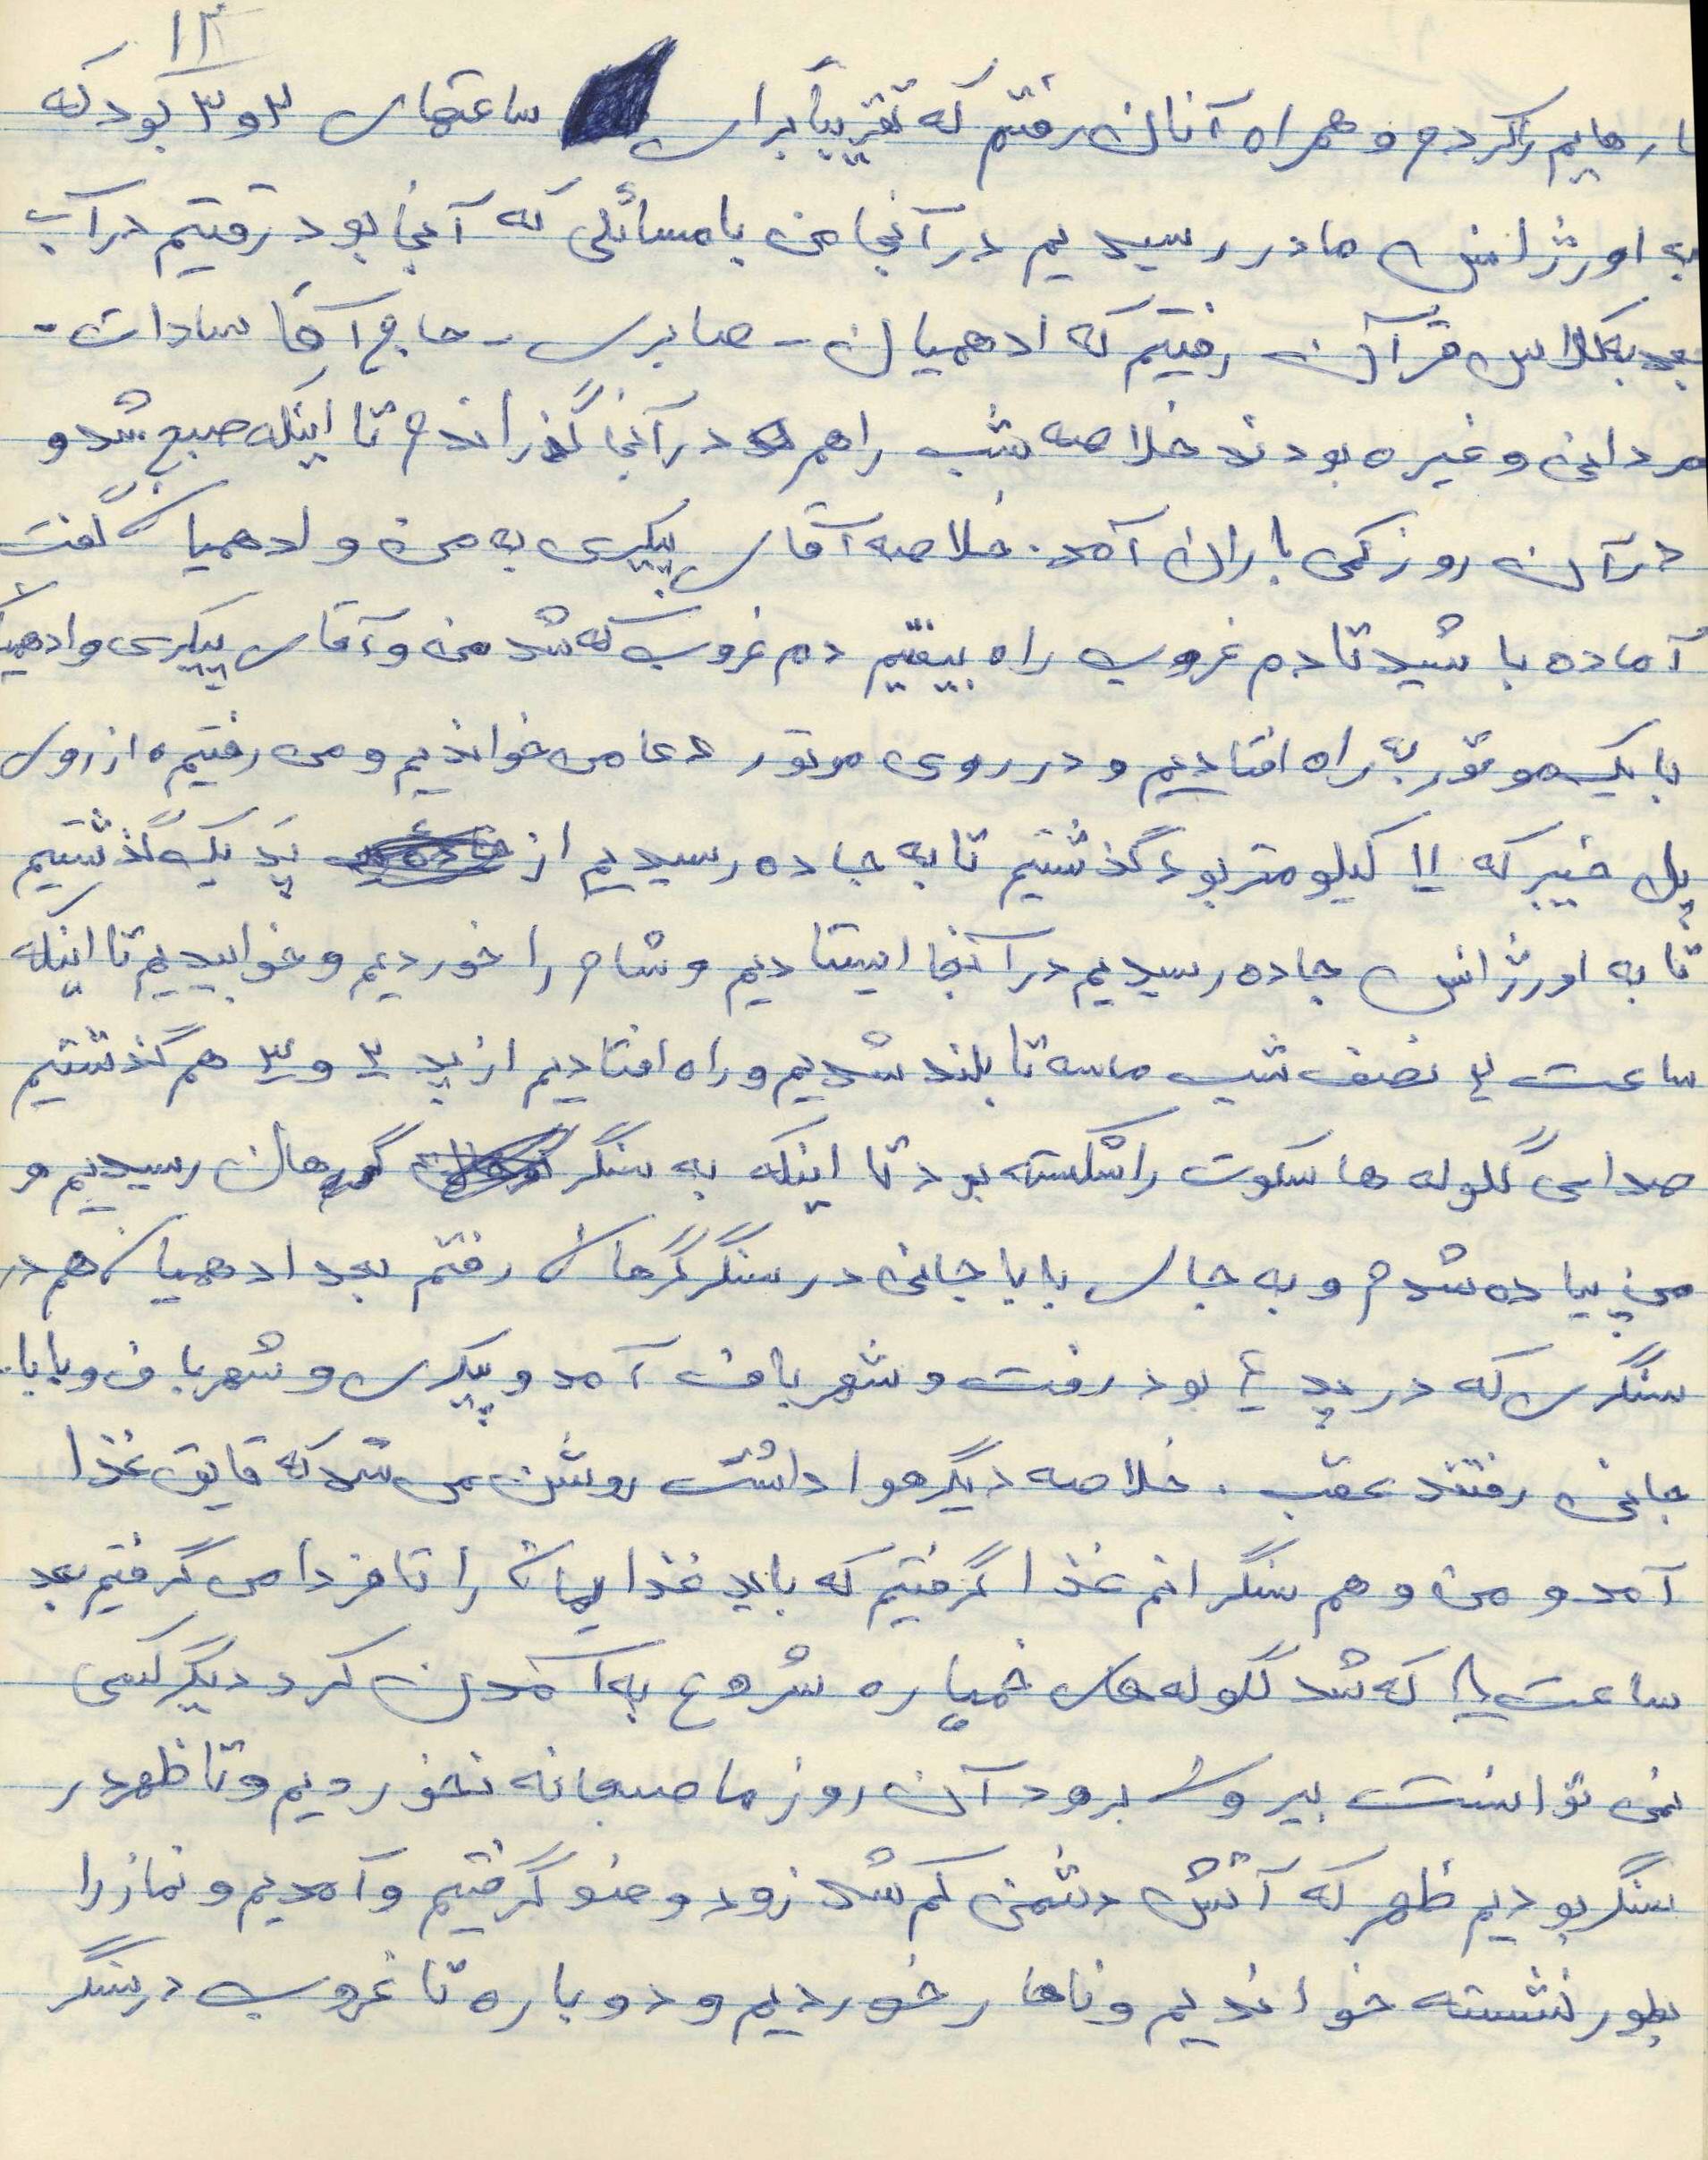 ۱۳
بارهایم را کردم و همراه آنان رفتم که تقریباً برای ساعتهای ۲ و ۳ بود که
به اورژانس مادر رسیدیم در آنجا من با مسائلی که آنجا بود رفتیم در آب
بعد بکلاس قرآن رفتیم که ادهمیان - صابری - حاج آقا سادات -
مردانی و غیره بودند خلاصه شب را هم در آنجا گذراندم تا اینکه صبح شد و
در آن روز کمی باران آمد. خلاصه آقای پیکری به من و ادهمیان گفت
آماده باشید تا دم غروب راه بیفتیم دم غروب که شد من و آقای پیکری و ادهمیان
با یک موتور به راه افتادیم و در روی موتور دعا می خواندیم و می رفتیم، از روی
پل خیبر که ۱۱ کیلومتر بود گذشتیم تا به جاده رسیدیم از پَد یک گذشتیم
تا به اورژانس جاده رسیدیم در آنجا ایستادیم و شام را خوردیم و خوابیدیم تا اینکه
ساعت ۲ نصف شب ما سه تا بلند شدیم و راه افتادیم از پد ۲ و ۳ هم گذشتیم
صدای گلوله ها سکوت را شکسته بود تا اینکه به سنگر گرهان رسیدیم و
من پیاده شدم و به جای بابا جانی در سنگر گرهان رفتم بعد ادهمیان هم در
سنگری که در پد ۴ بود رفت و شهرباف آمد و پیکری و شهرباف و بابا.
جانی رفتند عقب. خلاصه دیگر هوا داشت روشن می شد که قایق غذا
آمد و من و هم سنگرانم غذا گرفتیم که باید غذایمان را تا فردا می گرفتیم بعد
ساعت ۸ که شد گلوله های خمپاره شروع به آمدن کرد دیگر کسی
نمی توانست بیرون برود آن روز ما صبحانه نخوردیم و تا ظهر در
سنگر بودیم ظهر که آتش دشمن کم شد زود وضو گرفتیم و آمدیم و نماز را
بطور نشسته خواندیم و ناهار خوردیم و دوباره تا غروب در سنگر